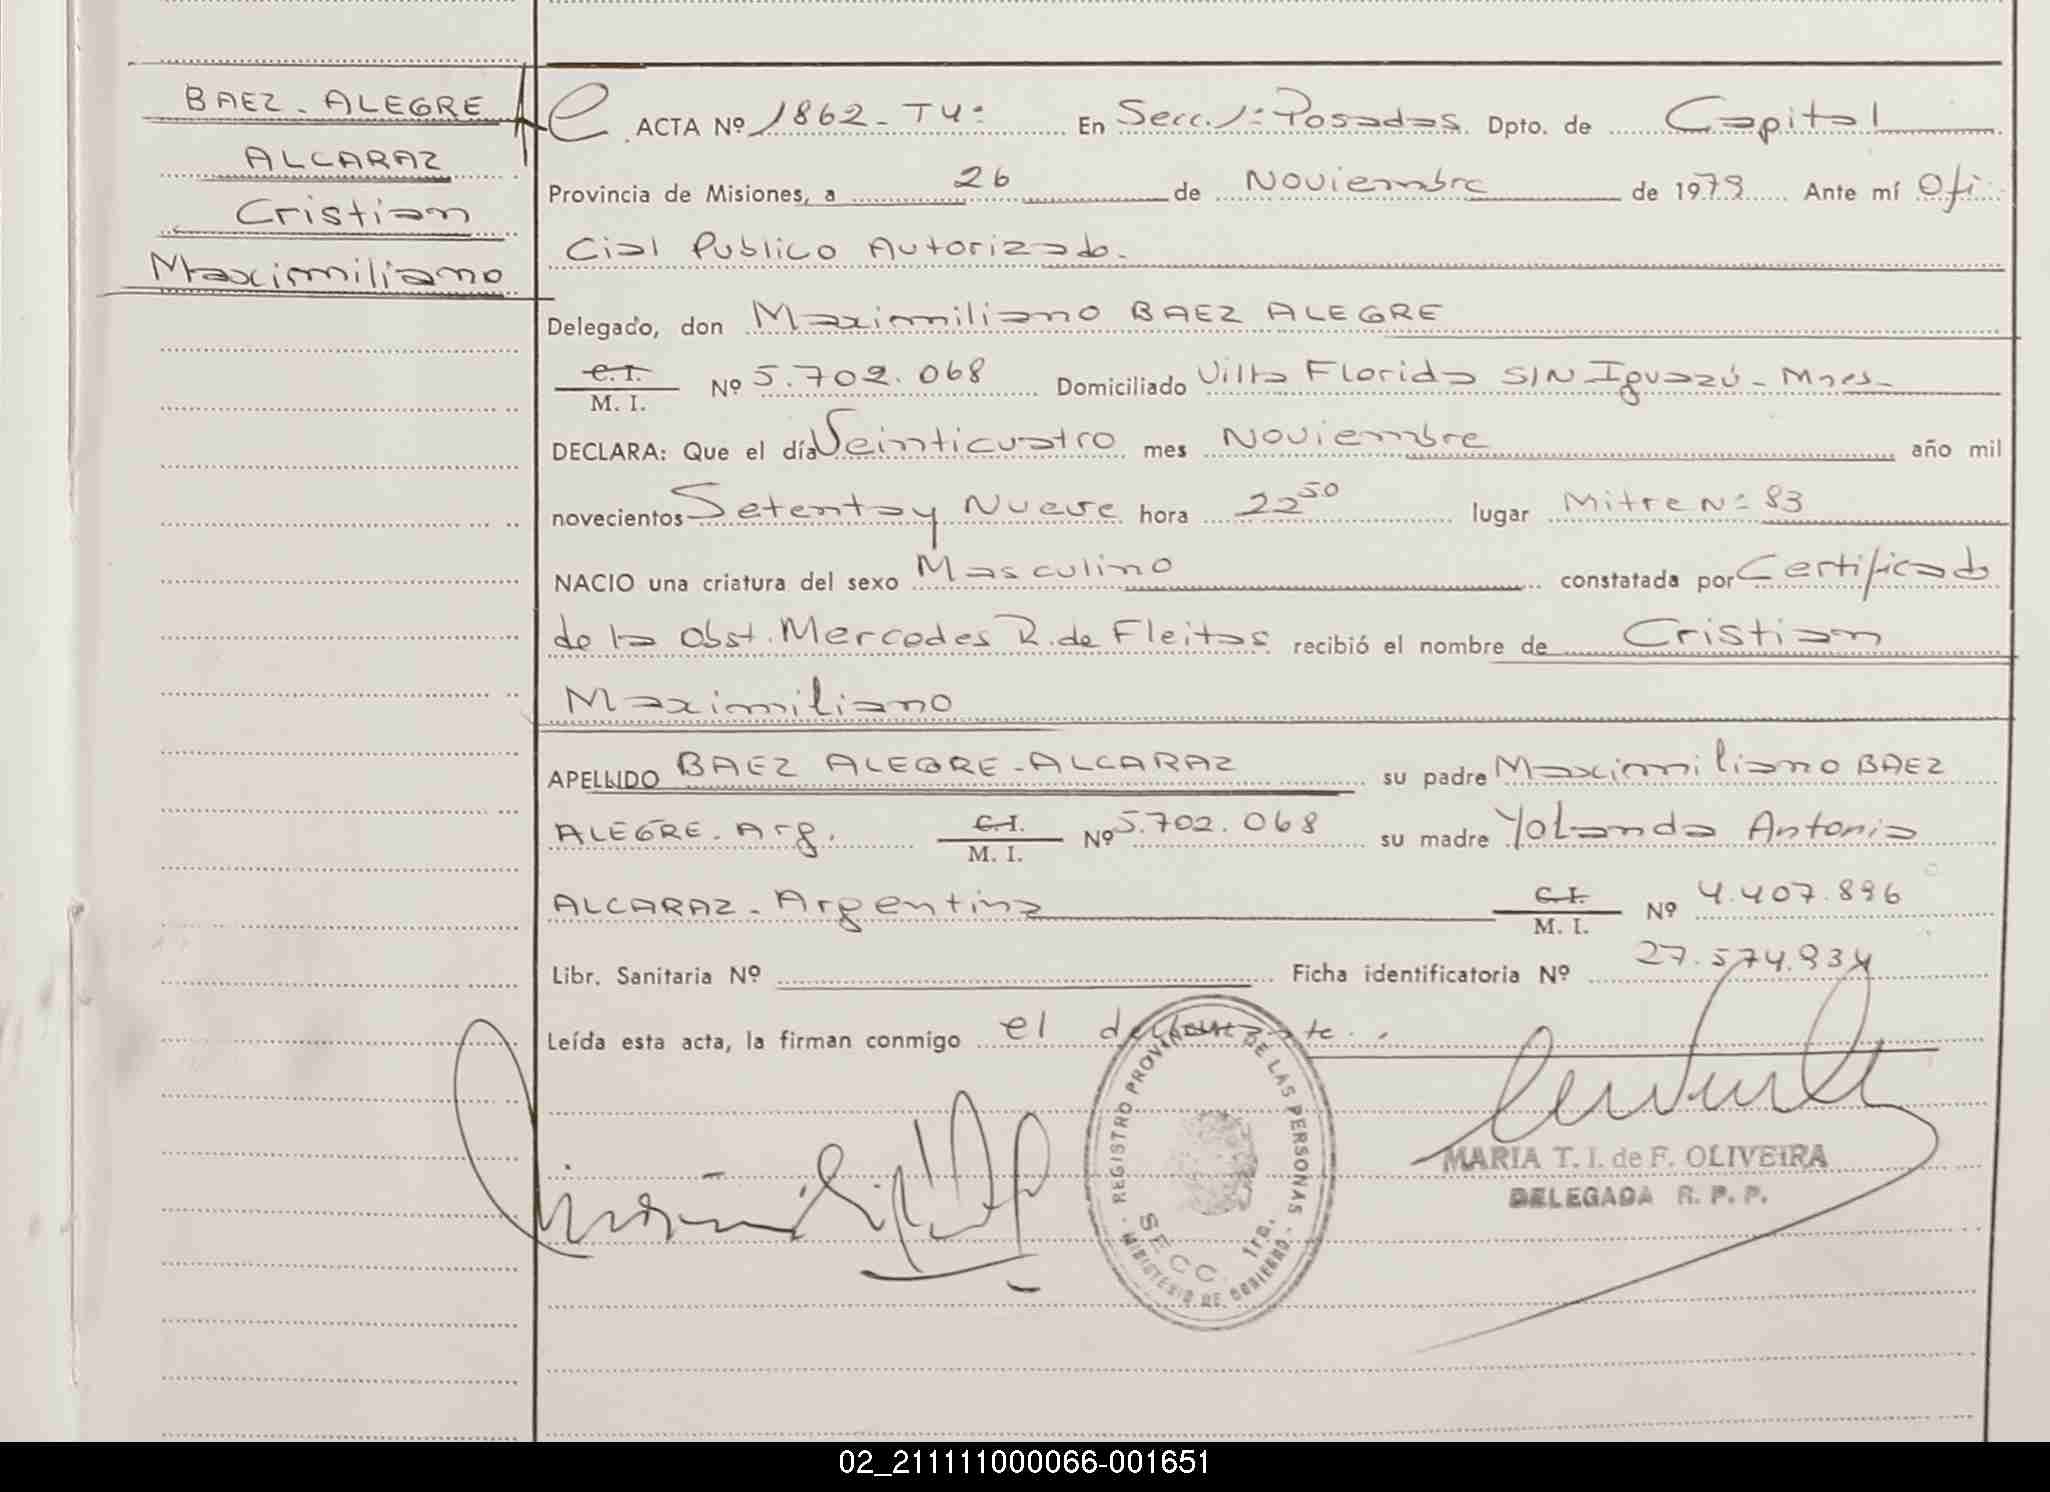 BAEZ - ALEGRE
ALCARAZ
Cristian
Maximiliano
ACTA Nº 1862 - T4º En Secc. 1º Posadas. Dpto. de Capital
Provincia de Misiones, a 26 de Noviembre de 1979 Ante mí Ofi
cial Publico Autorizado.
Delegado, don Maximiliano BAEZ ALEGRE
C. I.
M. I. Nº 5.702.068 Domiciliado Villa Florida S/N Iguazú - Mnes -
DECLARA: Que el día Veinticuatro mes Noviembre año mil
novecientos Setenta y Nueve hora 22 50 lugar Mitre Nº 93
NACIO una criatura del sexo Masculino constatada por Certificado
de la Obst. Mercedes R. de Fleitas recibió el nombre de Cristian
Maximiliano
APELLIDO BAEZ ALEGRE - ALCARAZ su padre Maximiliano BAEZ
ALEGRE - Arg. C. I. M. I. Nº 5.702.068 su madre Yolanda Antonia
ALCARAZ - Argentina C. I. M. I. Nº 4.407.896
Libr. Sanitaria Nº Ficha identificatoria Nº 27.574.934
Leída esta acta, la firman conmigo el declarante.
REGISTRO PROVINCIAL DE LAS PERSONAS
SECC. 1ra.
MINISTERIO DE GOBIERNO
MARIA T. I. de F. OLIVEIRA
DELEGADA R. P. P.
02_211111000066-001651